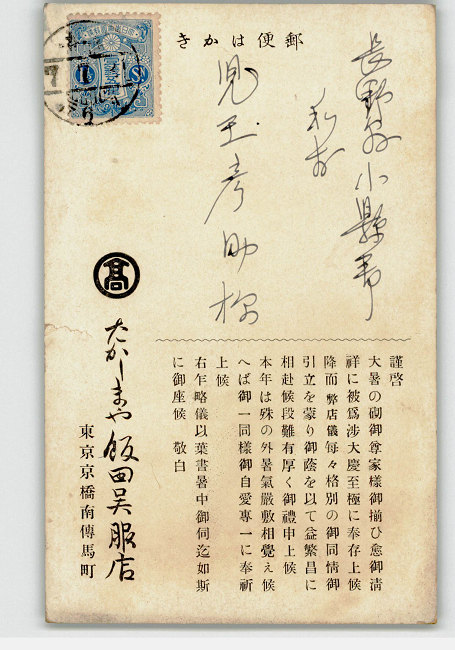 郵便はかき
長野县小縣郡
和村
児玉彦助様
謹啓
大暑の砌御尊家樣御揃ひ愈御淸
祥に被爲涉大慶至極に奉存上候
降而弊店儀每々格別の御同情御
引立を蒙り御蔭を以て益繁昌に
相赴候段難有厚く御禮申上候
本年は殊の外暑氣嚴敷相覺え候
へば御一同樣御自愛專一に奉祈
上候
右乍略儀以葉書暑中御伺迄如斯
に御座候 敬白
髙
たかしまや飯田呉服店
東京京橋南傳馬町